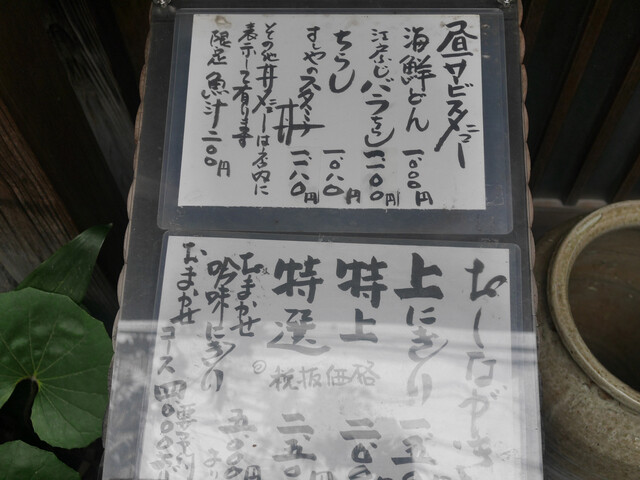 昼サービスメニュー
海鮮どん 一、一〇〇円
江戸ふじバラちらし 一、二〇〇円
ちらし 一、〇八〇円
すしやのスタミナ丼 一、二八〇円
その他丼メニューは店内に
表示して有ります
限定 魚汁 二〇〇円
おしながき
上にぎり 一、五〇
特上 二、〇〇
特選 二、五〇
税抜価格
おまかせ
吟味にぎり 五、〇〇〇円
おまかせ
コース 四〇〇〇
要予約